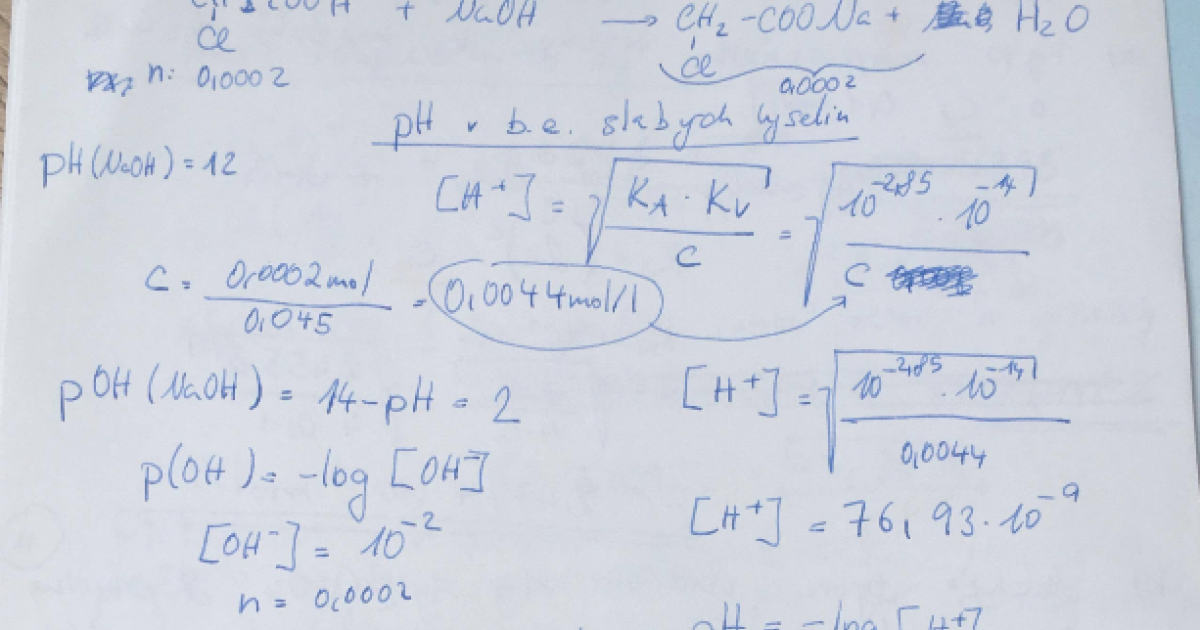 + NaOH → CH₂-COONa + H₂O
Cl Cl
n: 0,0002 0,0002
pH v b.e. slabých kyselin
pH(NaOH) = 12
[H⁺] = √(K_A · K_V / C) = √(10⁻²,⁸⁵ · 10⁻¹⁴ / C)
C = 0,0002 mol / 0,045 = 0,0044 mol/l
pOH (NaOH) = 14 - pH = 2
[H⁺] = √(10⁻²,⁸⁵ · 10⁻¹⁴ / 0,0044)
p(OH) = -log [OH⁻]
[H⁺] = 76,93 · 10⁻⁹
[OH⁻] = 10⁻²
n = 0,0002
pH = -log [H⁺]